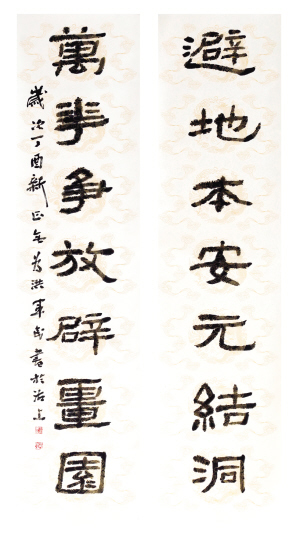 避地本安元結洞
萬華争放辟畺園
歲次丁酉新正為洪軍書於沽上